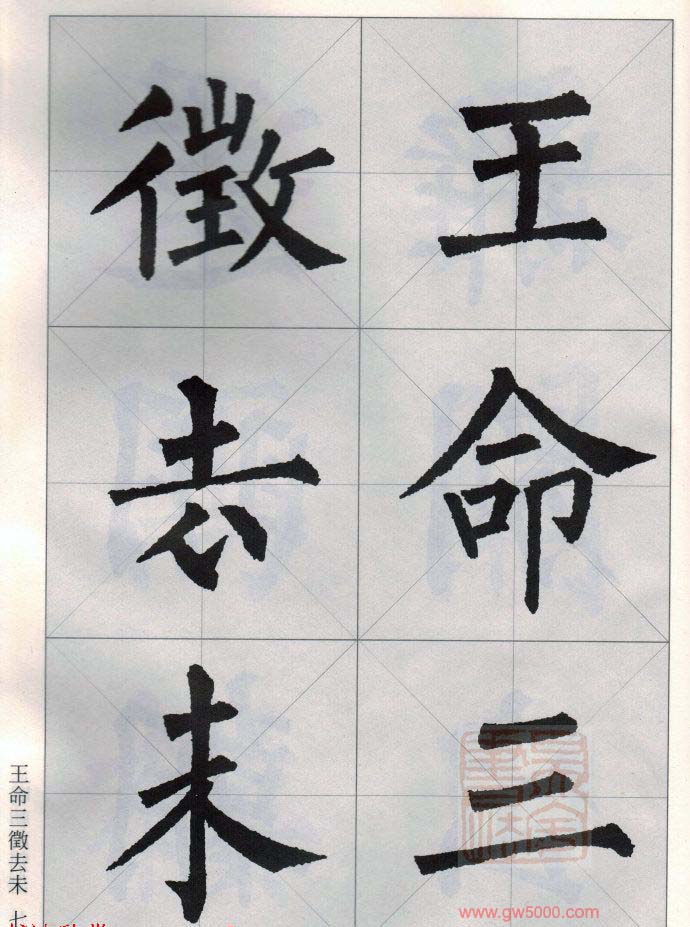 王命三
徵去未
王命三徵去未 七
www.gw5000.com